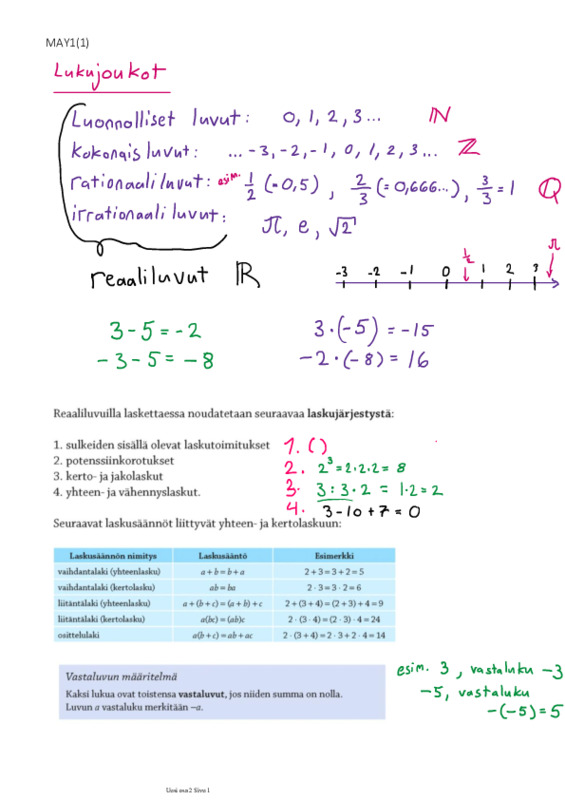 MAY1(1)
Lukujoukot
Luonnolliset luvut: 0, 1, 2, 3... ℕ
Kokonaisluvut: ... -3, -2, -1, 0, 1, 2, 3... ℤ
rationaaliluvut: esim. 1/2 (=0,5), 2/3 (=0,666...), 3/3 = 1 ℚ
irrationaaliluvut: π, e, √2
reaaliluvut ℝ
1/2 π
-3 -2 -1 0 1 2 3
3 - 5 = -2 3·(-5) = -15
-3 - 5 = -8 -2·(-8) = 16
Reaaliluvuilla laskettaessa noudatetaan seuraavaa laskujärjestystä:
1. sulkeiden sisällä olevat laskutoimitukset 1. ( )
2. potenssiinkorotukset 2. 2³ = 2·2·2 = 8
3. kerto- ja jakolaskut 3. 3:3·2 = 1·2 = 2
4. yhteen- ja vähennyslaskut. 4. 3 - 10 + 7 = 0
Seuraavat laskusäännöt liittyvät yhteen- ja kertolaskuun:
Laskusäännön nimitys Laskusääntö Esimerkki
vaihdantalaki (yhteenlasku) a + b = b + a 2 + 3 = 3 + 2 = 5
vaihdantalaki (kertolasku) ab = ba 2 · 3 = 3 · 2 = 6
liitäntälaki (yhteenlasku) a + (b + c) = (a + b) + c 2 + (3 + 4) = (2 + 3) + 4 = 9
liitäntälaki (kertolasku) a(bc) = (ab)c 2 · (3 · 4) = (2 · 3) · 4 = 24
osittelulaki a(b + c) = ab + ac 2 · (3 + 4) = 2 · 3 + 2 · 4 = 14
Vastaluvun määritelmä
Kaksi lukua ovat toistensa vastaluvut, jos niiden summa on nolla.
Luvun a vastaluku merkitään –a.
esim. 3, vastaluku -3
-5, vastaluku
-(-5) = 5
Sivu 1